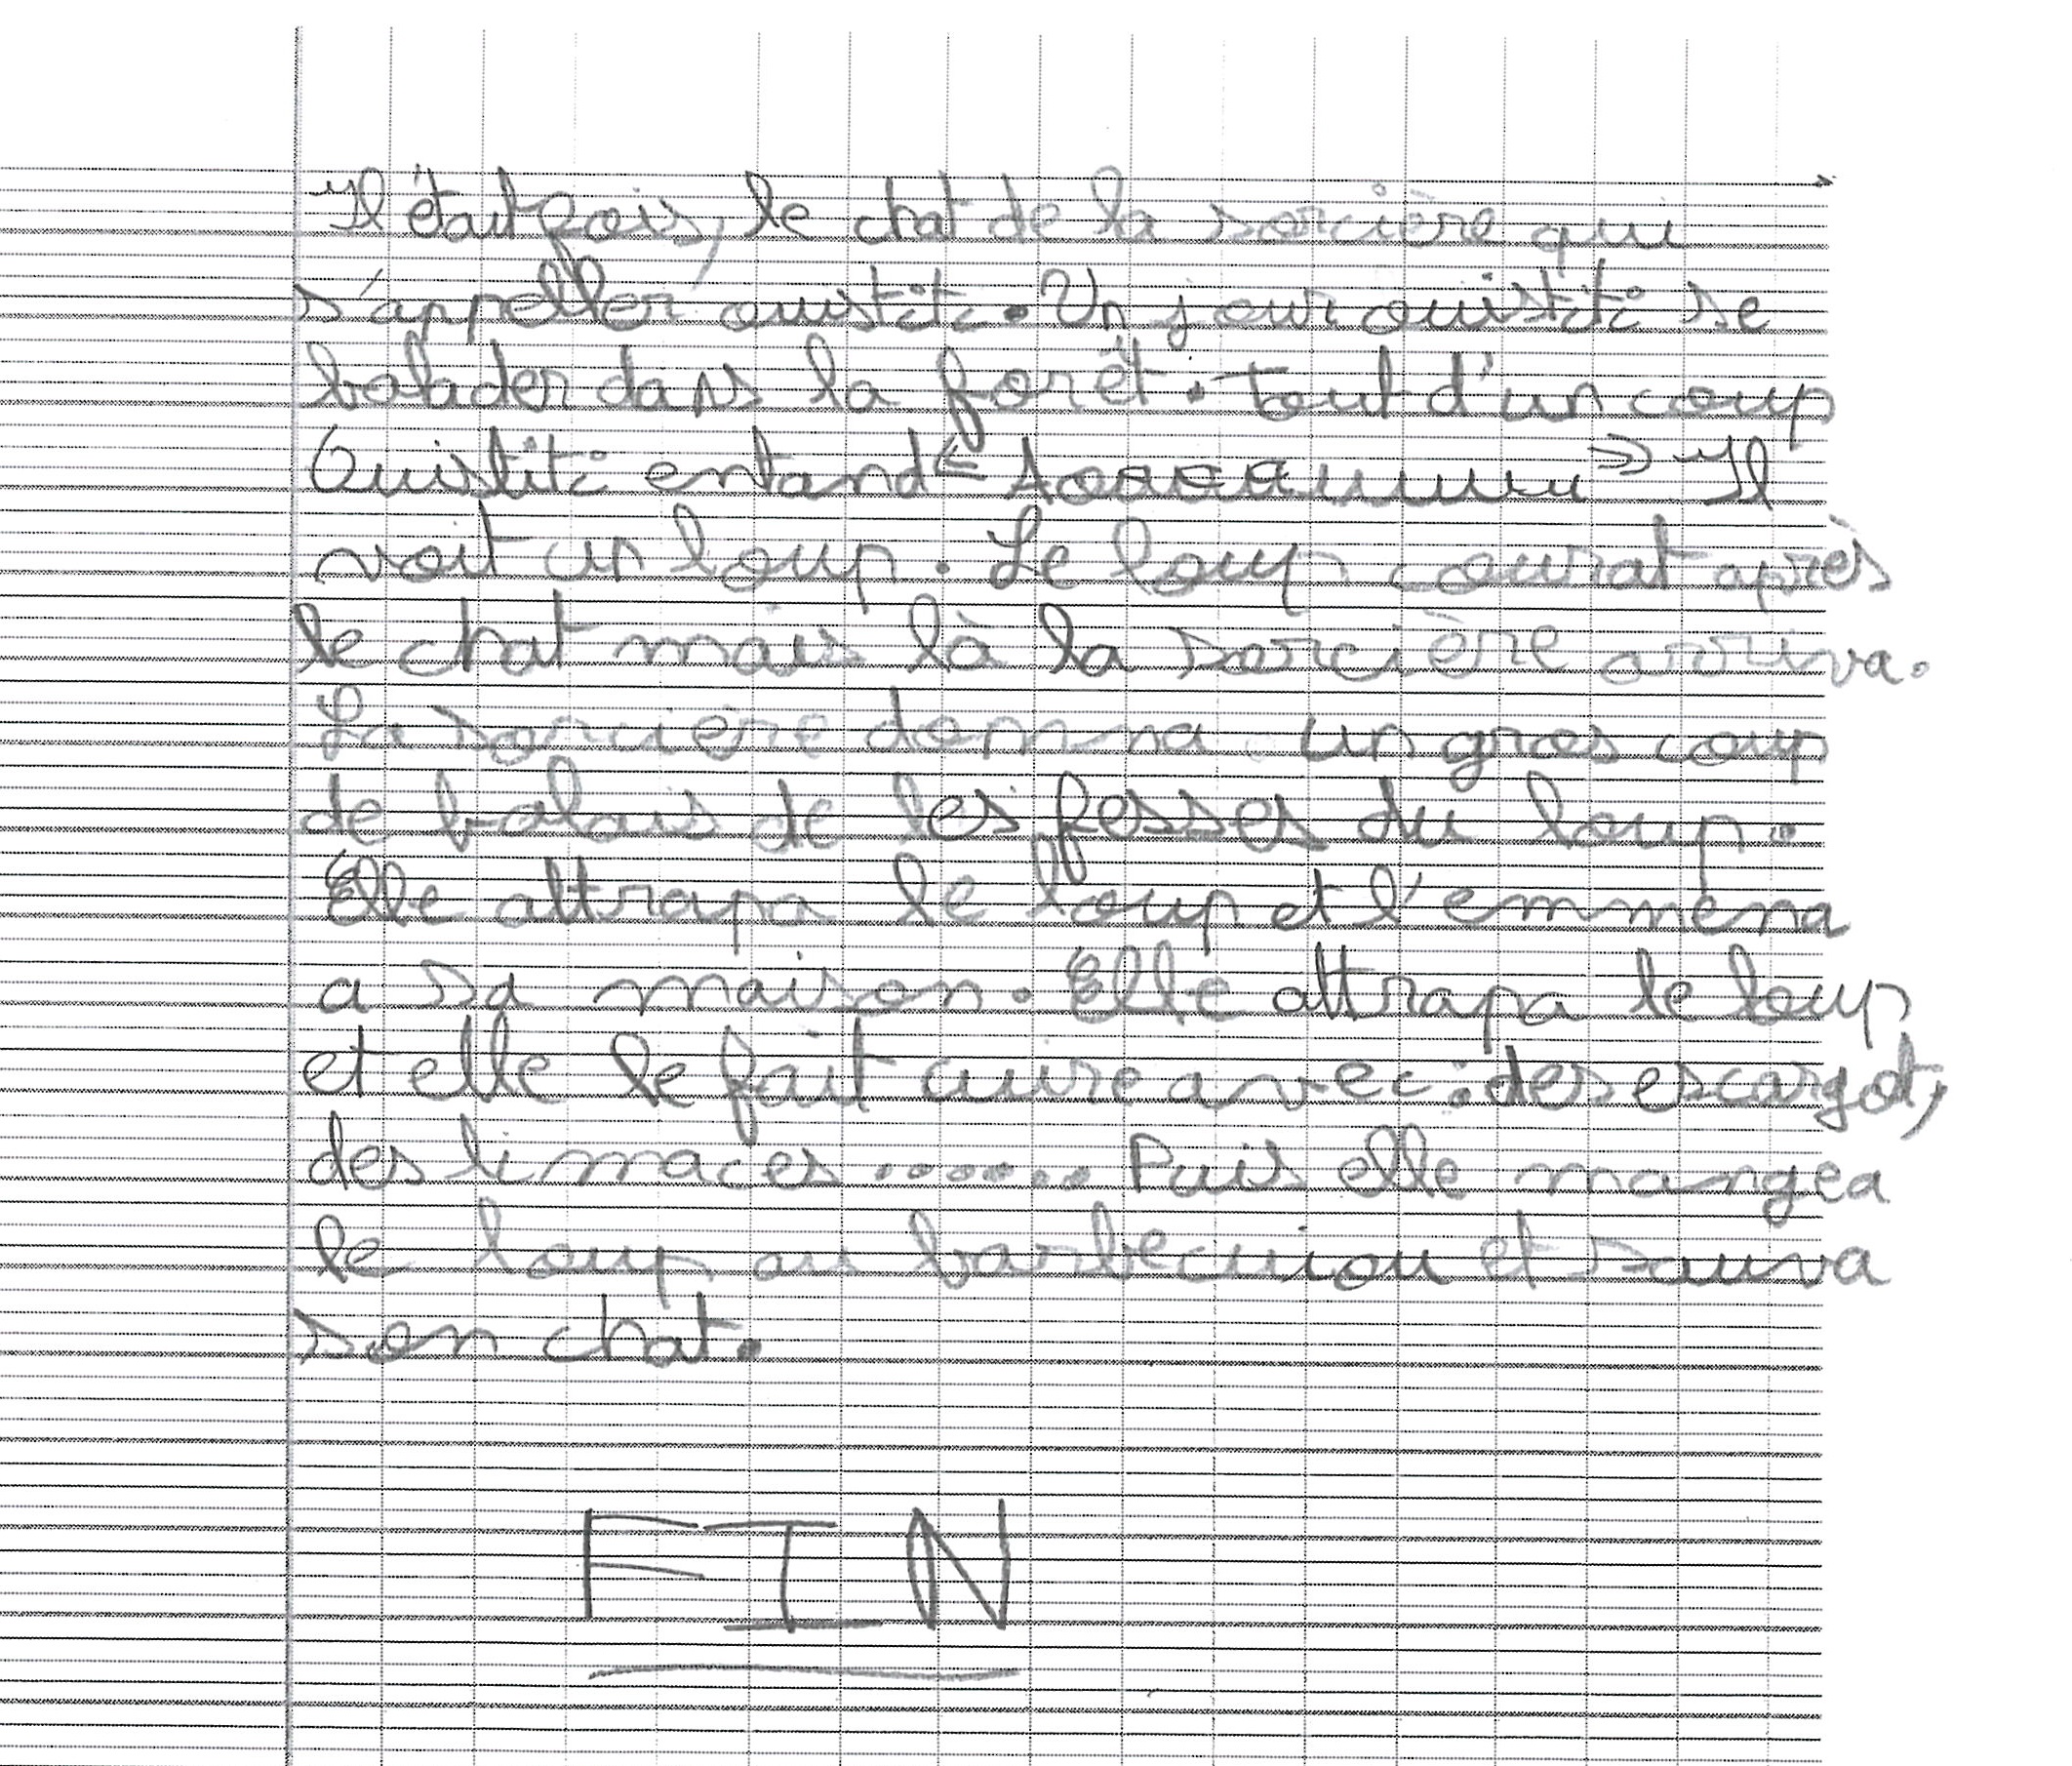 Il étaitfois, le chat de la sorcière qui
s'appeller ouistiti. Un jour ouistiti se
balader dans la forêt. Tout d'un coup
Ouistiti entand « Aoooouuuuu » Il
voit un loup. Le loup courat après
le chat mais là la sorcière arriva.
La sorcière donna un gros coup
de balais de les fesses du loup.
Elle attrapa le loup et l'emmena
a sa maison. Elle attrapa le loup
et elle le fait cuire avec : des escargot,
des limaces ....... Puis elle mangea
le loup au barbecuiou et sauva
son chat.
FIN